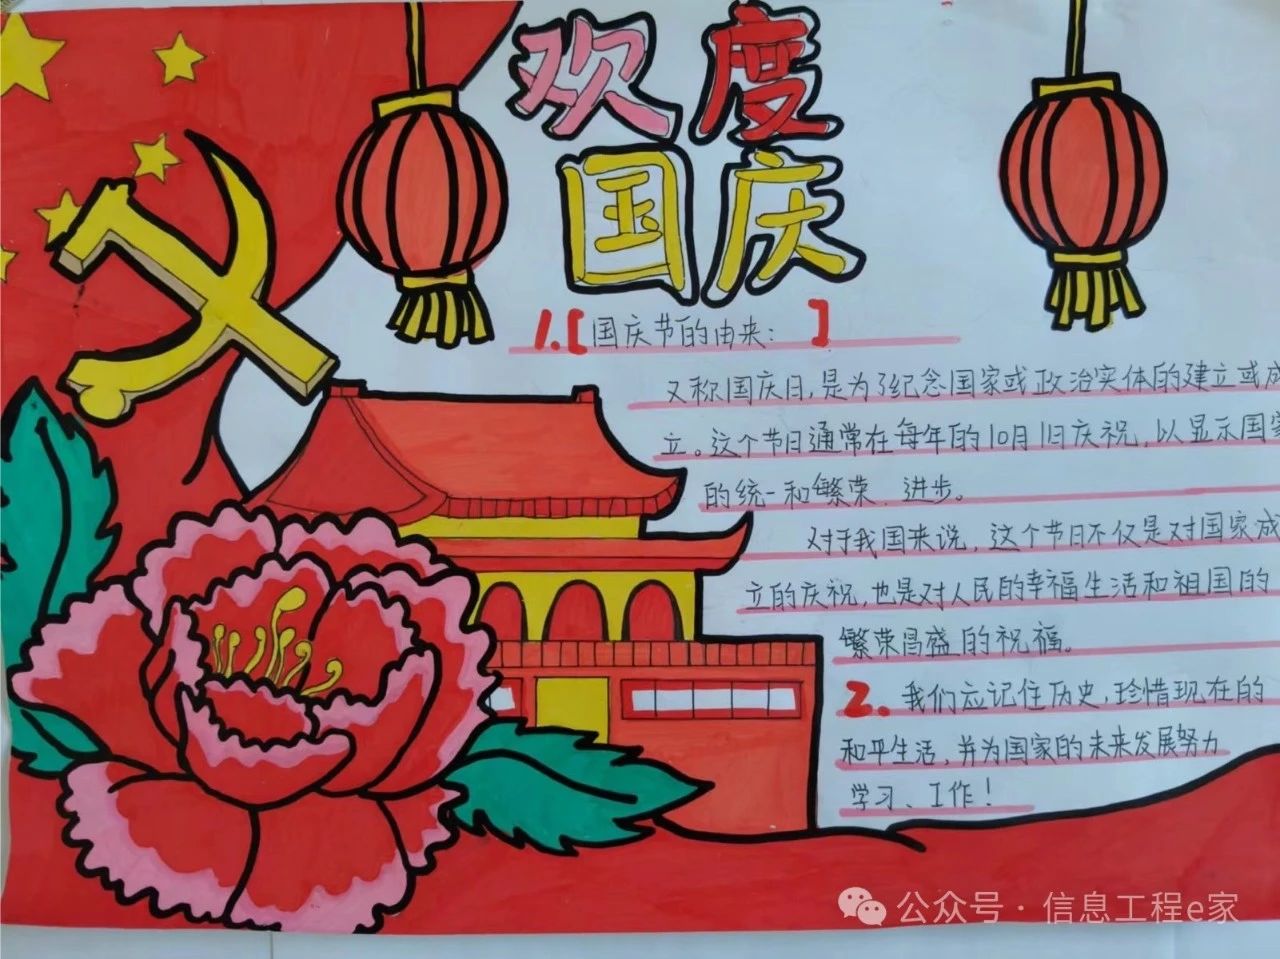 欢度
国庆
1.【国庆节的由来：】
又称国庆日，是为了纪念国家或政治实体的建立或成
立。这个节日通常在每年的10月1日庆祝，以显示国家
的统一和繁荣、进步。
对于我国来说，这个节日不仅是对国家成
立的庆祝，也是对人民的幸福生活和祖国的
繁荣昌盛的祝福。
2.我们应记住历史，珍惜现在的
和平生活，并为国家的未来发展努力
学习、工作！
公众号·信息工程e家